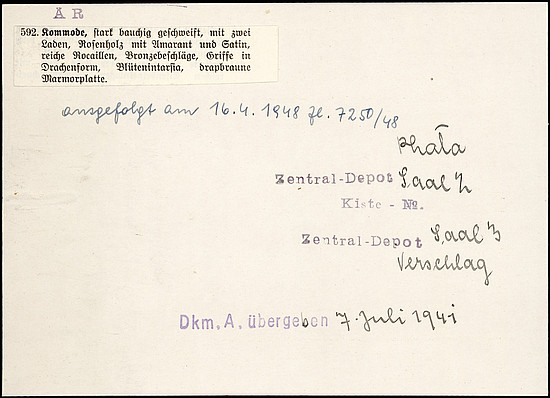 A R
592. Kommode, stark bauchig geschweift, mit zwei
Laden, Rosenholz mit Amarant und Satin,
reiche Rocaillen, Bronzebeschläge, Griffe in
Drachenform, Blütenintarsia, drapbraune
Marmorplatte.
ausgefolgt am 16.4.1948 Zl. 7250/48
Zentral-Depot Saal
Kiste - No.
Zentral-Depot Saal
Verschlag
Dkm. A. übergeben 7. Juli 1941